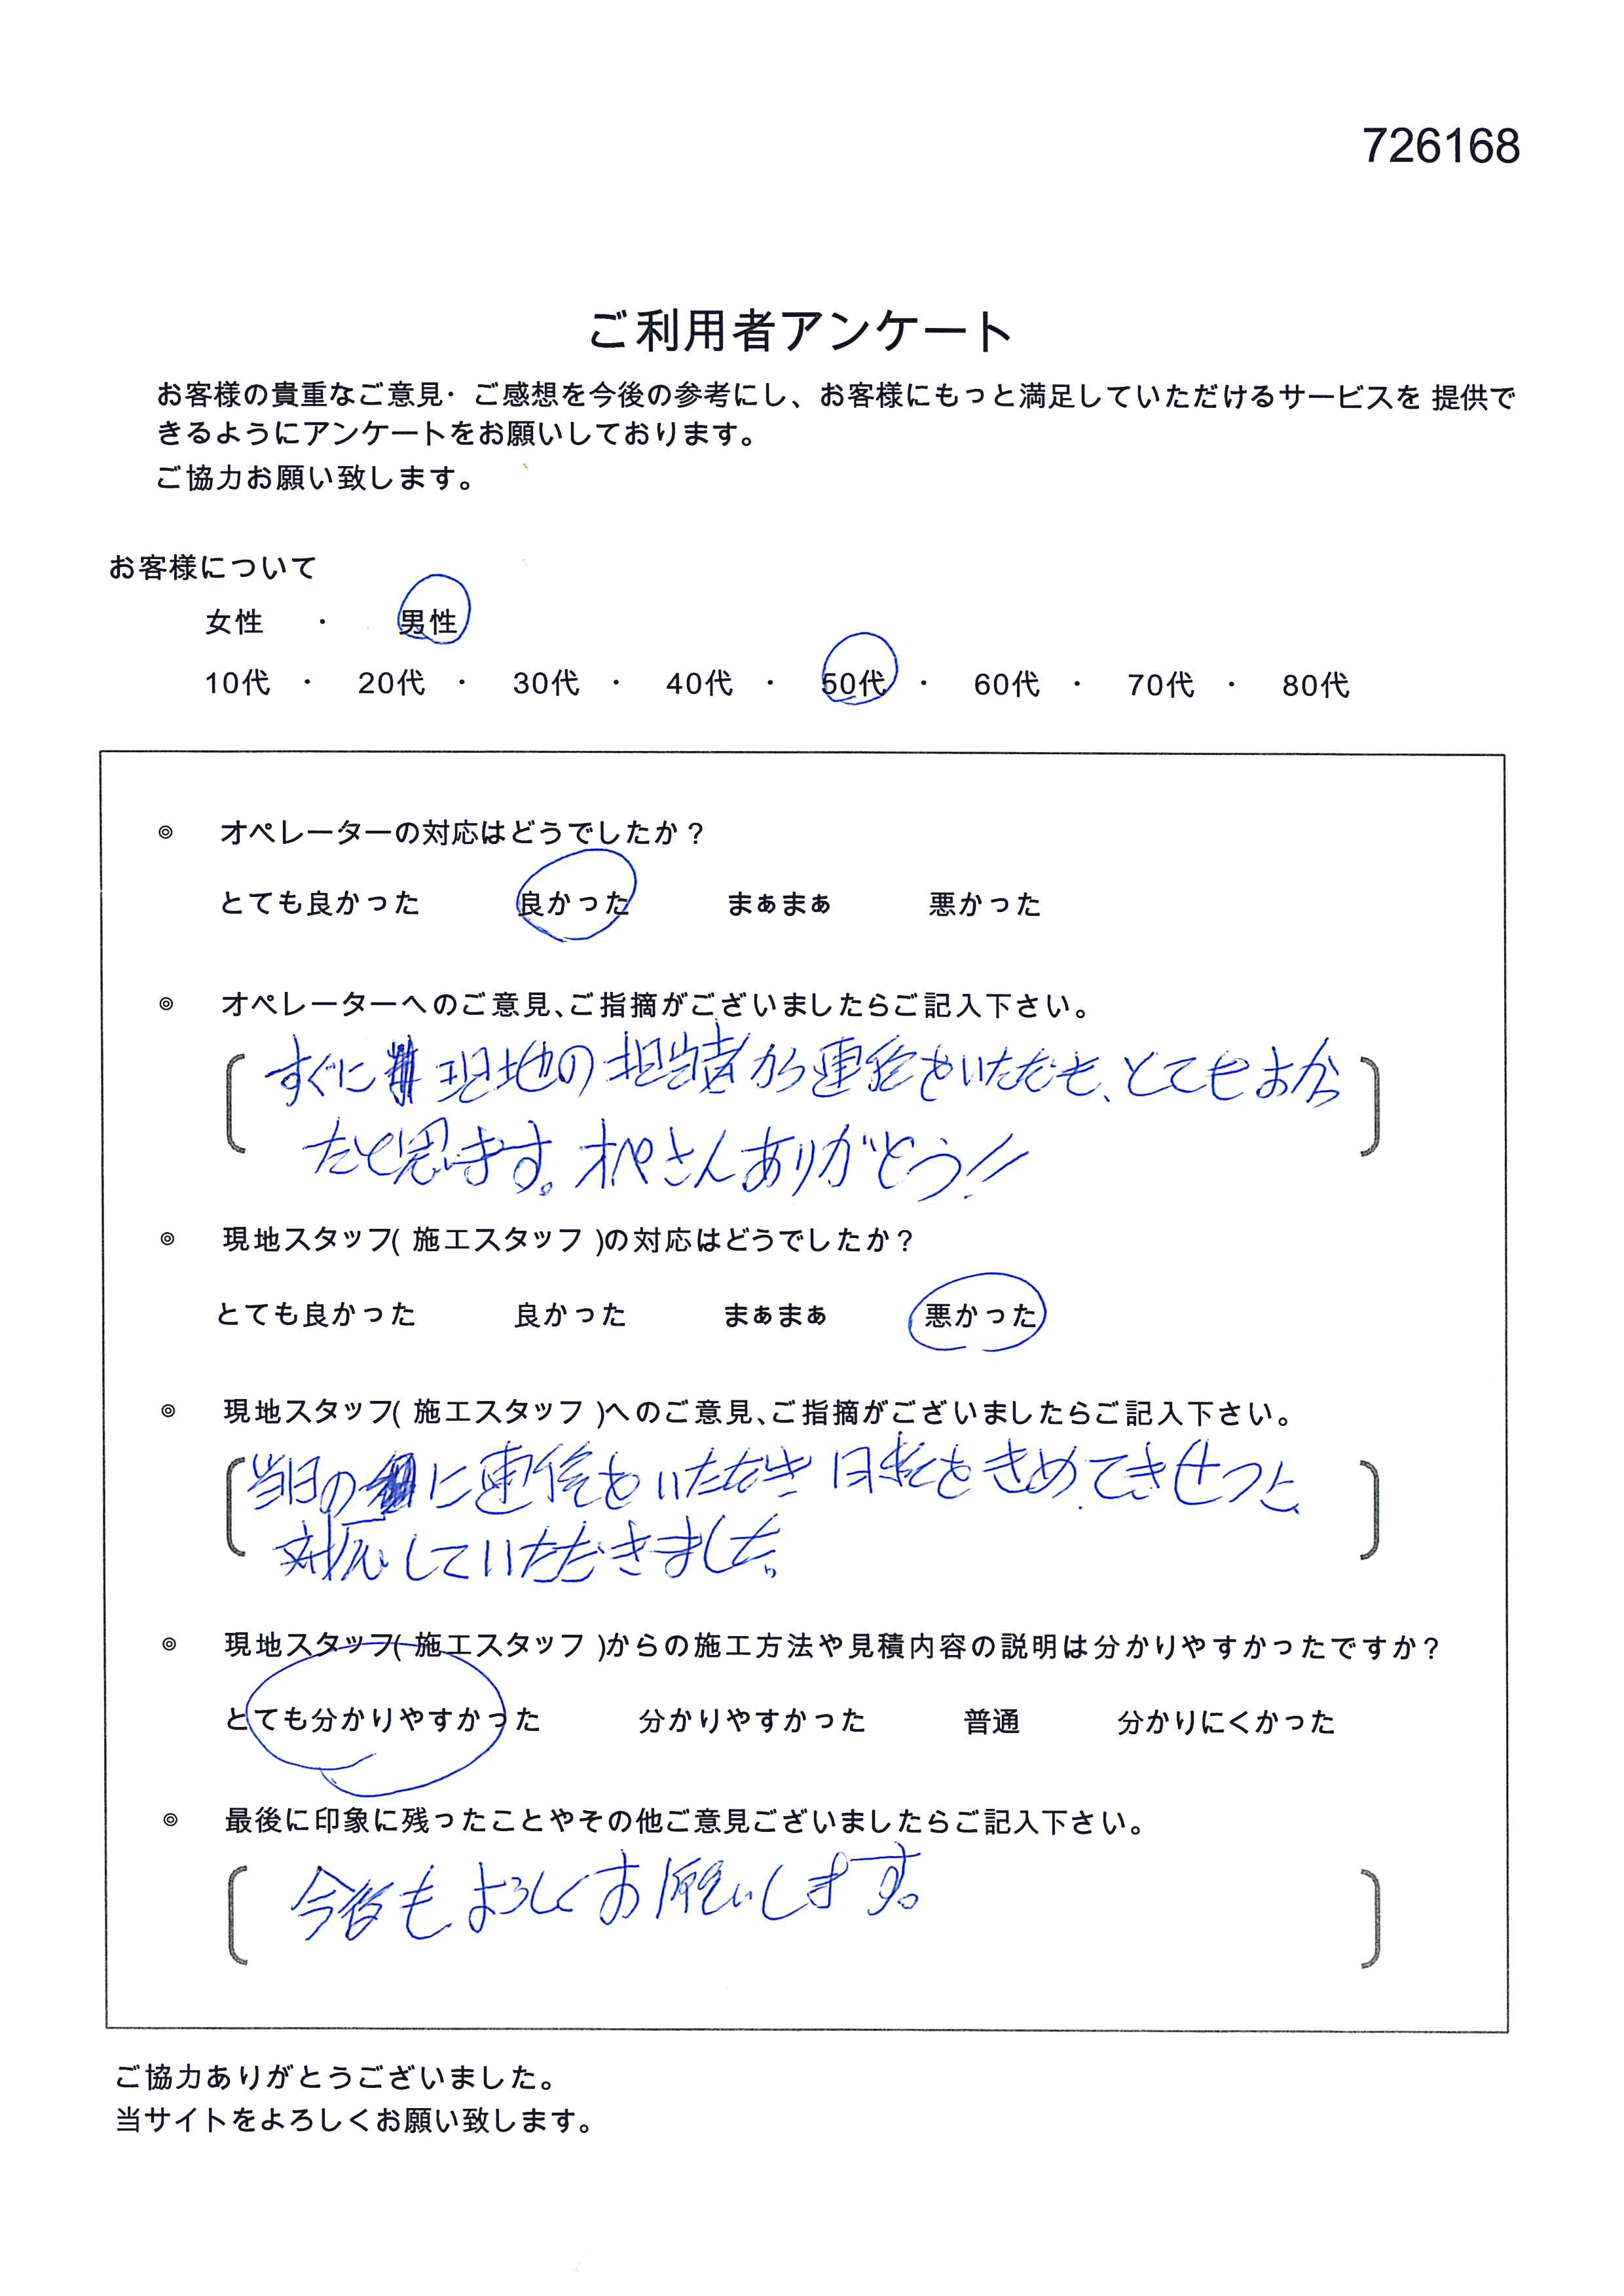 726168
ご利用者アンケート
お客様の貴重なご意見・ご感想を今後の参考にし、お客様にもっと満足していただけるサービスを 提供で
きるようにアンケートをお願いしております。
ご協力お願い致します。
お客様について
女性 ・ 男性
10代 ・ 20代 ・ 30代 ・ 40代 ・ 50代 ・ 60代 ・ 70代 ・ 80代
◎ オペレーターの対応はどうでしたか？
とても良かった 良かった まぁまぁ 悪かった
◎ オペレーターへのご意見、ご指摘がございましたらご記入下さい。
すぐに現地の担当者から連絡をいただき、とてもよかっ
たと思います。オペさんありがとう!!
◎ 現地スタッフ( 施工スタッフ )の対応はどうでしたか？
とても良かった 良かった まぁまぁ 悪かった
◎ 現地スタッフ( 施工スタッフ )へのご意見、ご指摘がございましたらご記入下さい。
当日の に連絡をいただき 日程をきめ、てきせつに
対応していただきました。
◎ 現地スタッフ( 施工スタッフ )からの施工方法や見積内容の説明は分かりやすかったですか？
とても分かりやすかった 分かりやすかった 普通 分かりにくかった
◎ 最後に印象に残ったことやその他ご意見ございましたらご記入下さい。
今後もよろしくお願いします。
ご協力ありがとうございました。
当サイトをよろしくお願い致します。